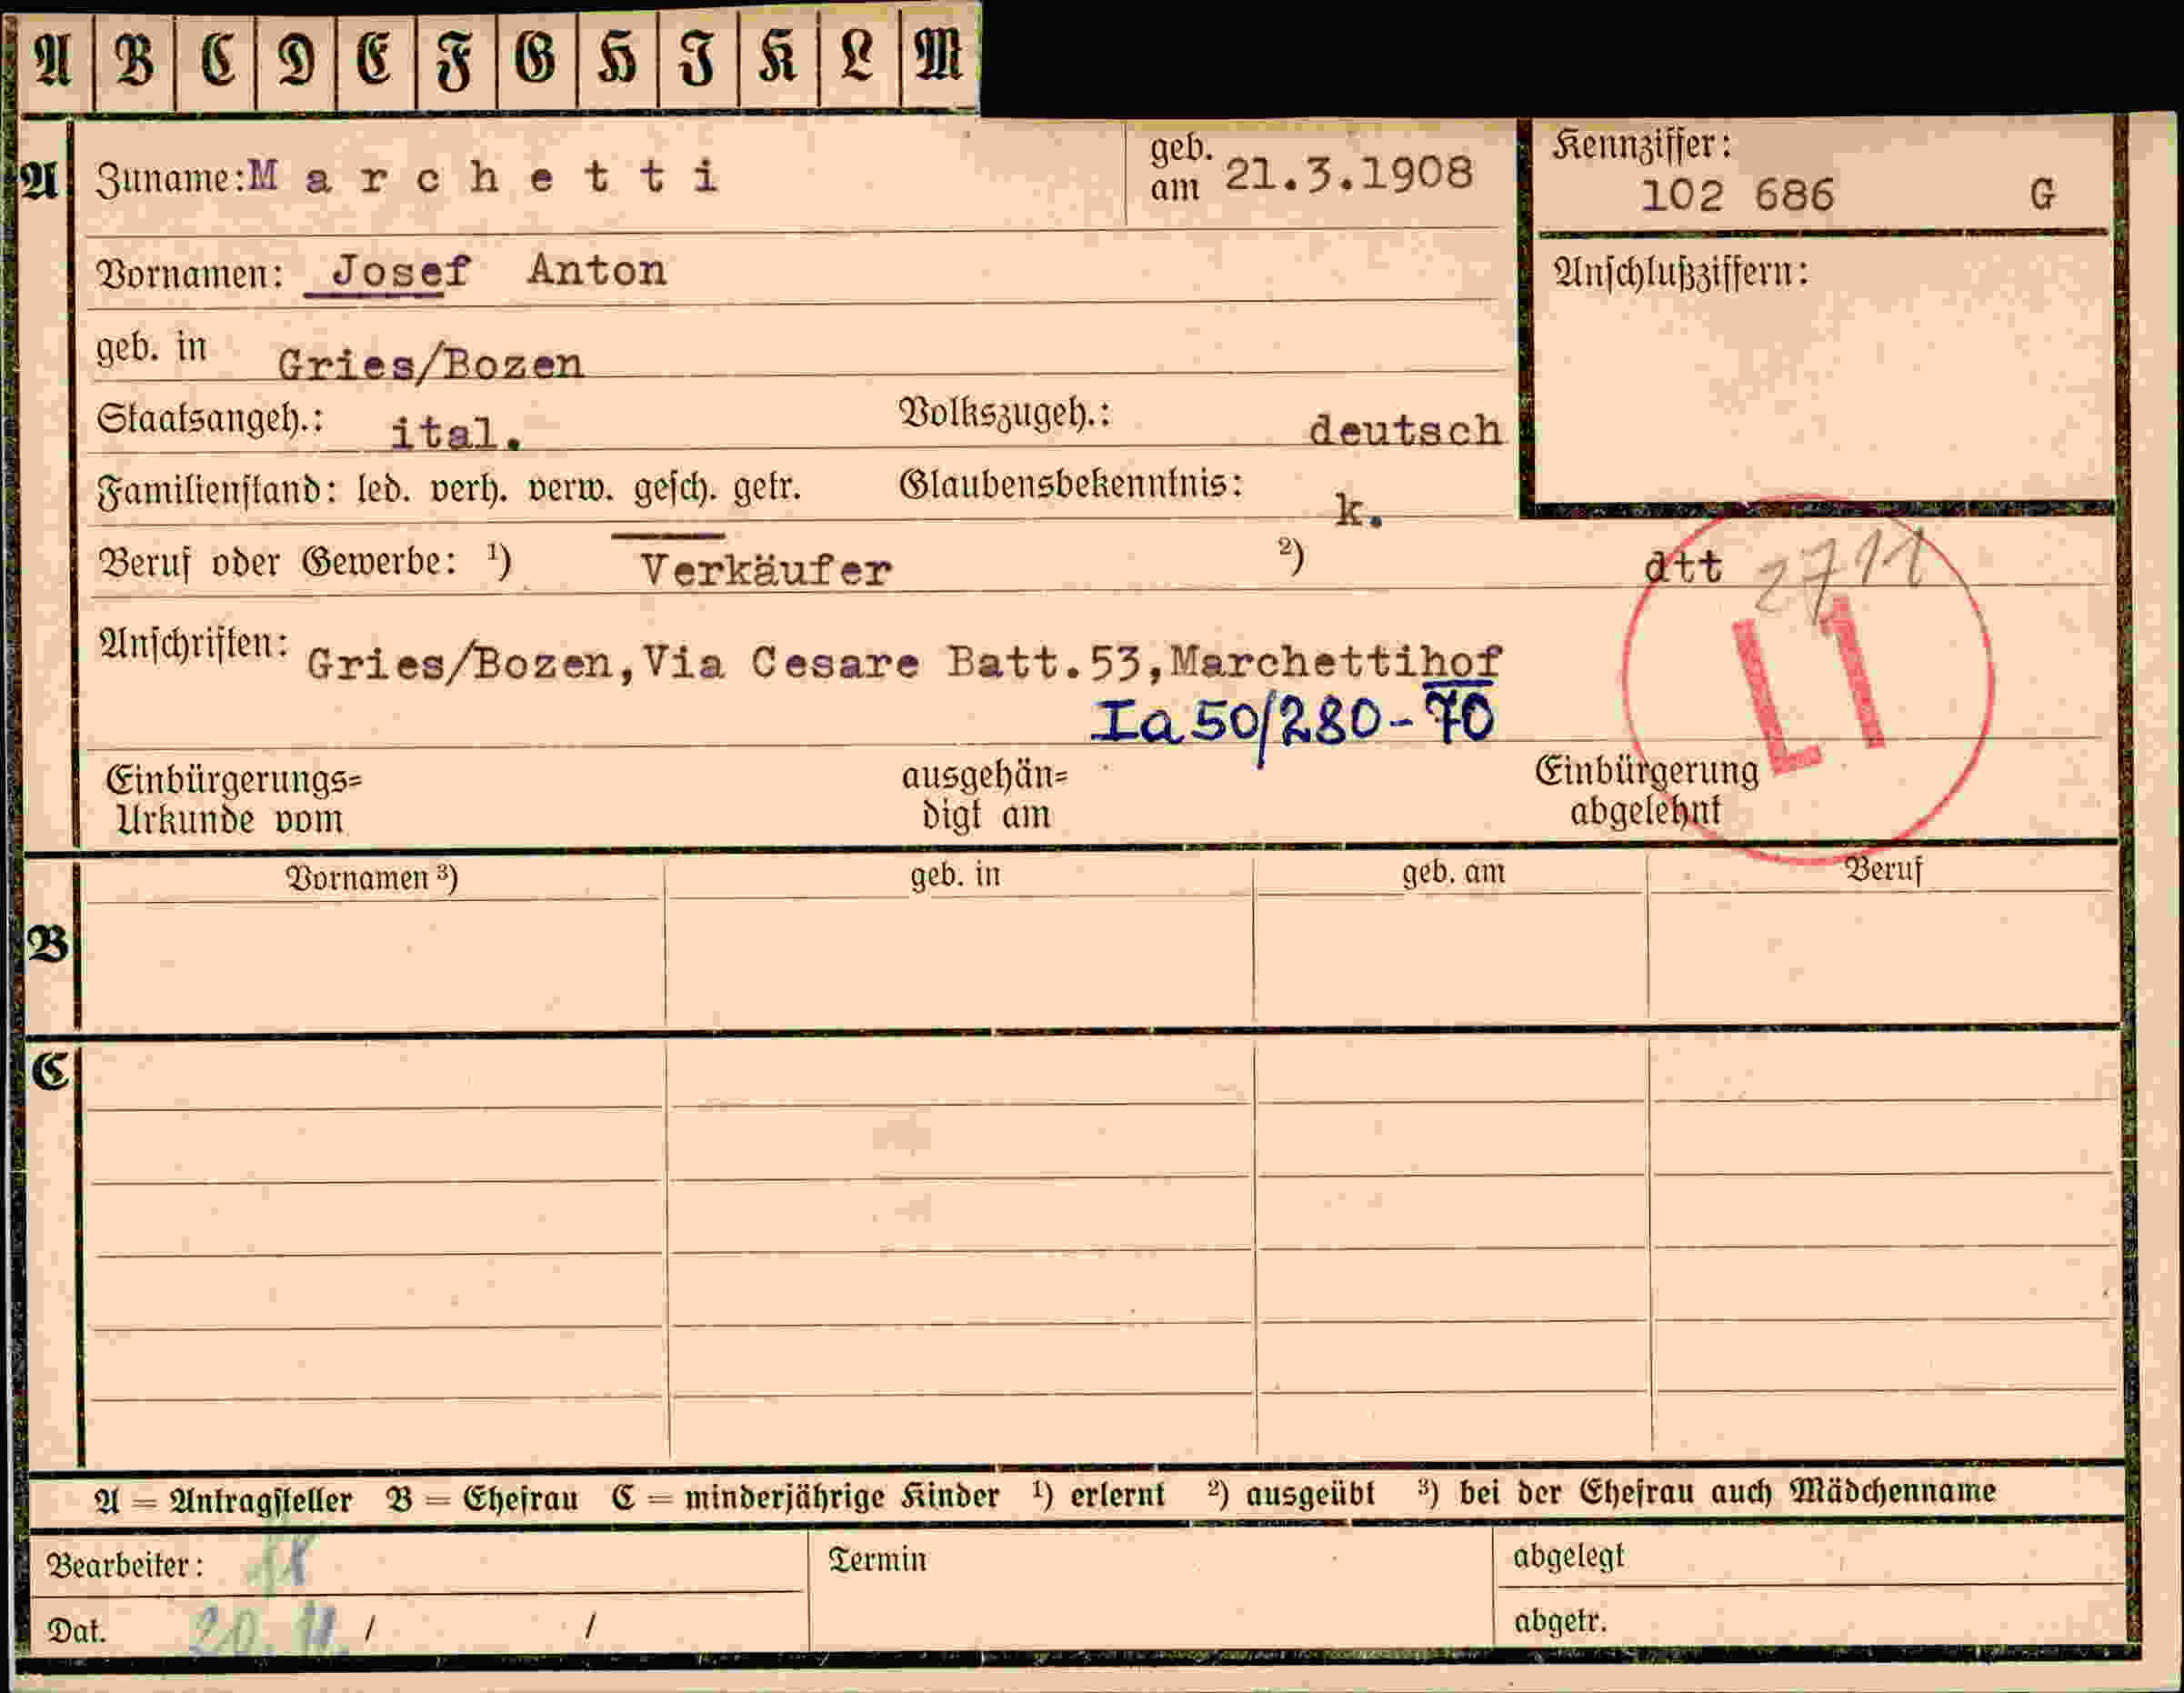 A B C D E F G H I K L M
A
Zuname: Marchetti geb. am 21.3.1908
Kennziffer:
102 686 G
Vornamen: Josef Anton
Anschlußziffern:
geb. in Gries/Bozen
Staatsangeh.: ital. Volkszugeh.: deutsch
Familienstand: led. verh. verw. gesch. getr. Glaubensbekenntnis: k.
Beruf oder Gewerbe: 1) Verkäufer 2) dtt 2711
Anschriften: Gries/Bozen, Via Cesare Batt.53, Marchettihof
L1
Ia 50/280-70
Einbürgerungs= ausgehän= Einbürgerung
Urkunde vom digt am abgelehnt
Vornamen 3) geb. in geb. am Beruf
B
C
A = Antragsteller B = Ehefrau C = minderjährige Kinder 1) erlernt 2) ausgeübt 3) bei der Ehefrau auch Mädchenname
Bearbeiter: Termin abgelegt
Dat. 20. 11. / / abgetr.